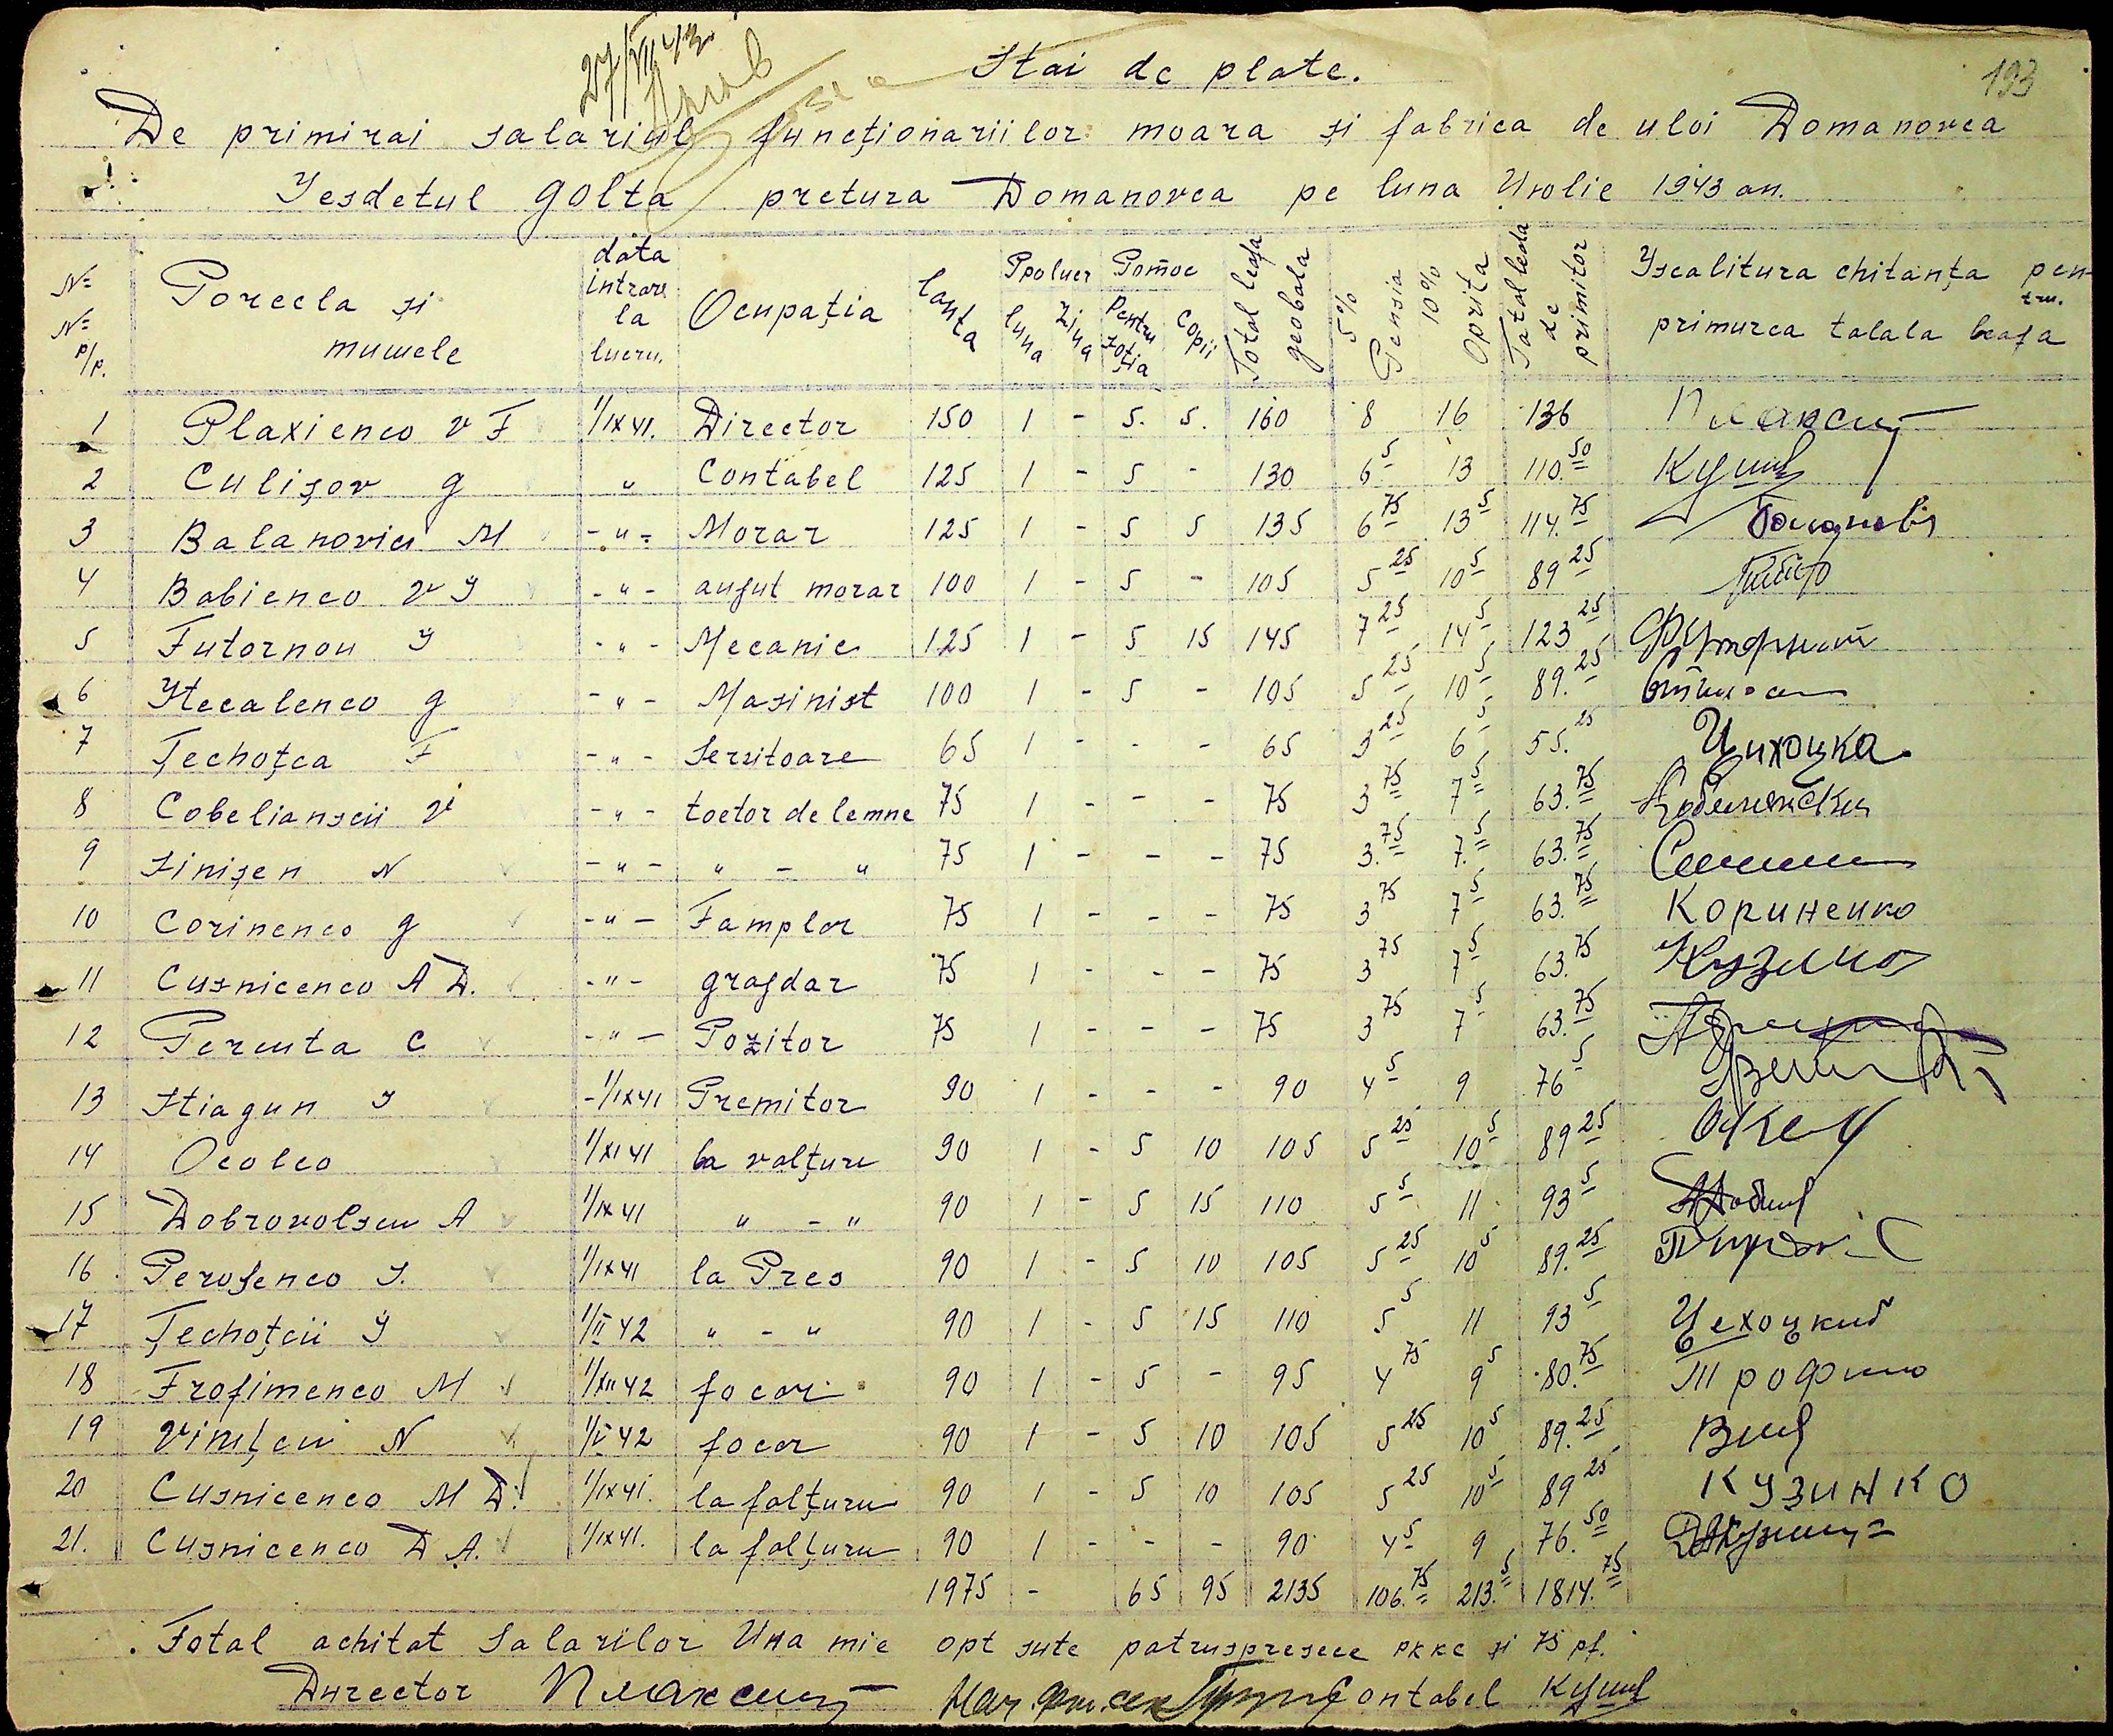 27/VII 43
193
Stai de plate.
De primirai salariul funcționariilor moara și fabrica de uloi Domanovca
Jesdetul Golta pretura Domanovca pe luna Iiolie 1943 an.
№ № p/p. Porecla și mumele data intrare la lucru. Ocupația Lanta Ppolucr luna Zina Pomoc Pentru soția Copii Total leafa geobala 5% Pensia 10% Oprita Total leafa de primitor Yscalitura chitanța pentru. primurea talala leafa
1 Plaxienco V F 1/IX 41. Director 150 1 - 5. 5. 160 8 16 136 Плаксиу
2 Culișov G " Contabel 125 1 - 5 - 130 6 5 13 110. 50 Кушв
3 Balanovici M - " - Morar 125 1 - 5 5 135 6 75 13 5 114. 75
4 Babienco V I - " - aufut morar 100 1 - 5 - 105 5 25 10 5 89 25
5 Futornou I - " - Mecanic 125 1 - 5 15 145 7 25 14 5 123 25 Футорный
6 Stecalenco G - " - Masinist 100 1 - 5 - 105 5 25 10 5 89. 25
7 Țechoțca F - " - Servitoare 65 1 - - - 65 3 25 6 5 55. 25 Цихоцка
8 Cobelianscii V - " - toctor de lemne 75 1 - - - 75 3 75 7 5 63. 75 Кобелянски
9 Sinișen N - " - " - " 75 1 - - - 75 3. 75 7. 5 63. 75
10 Corinenco G - " - Tamplar 75 1 - - - 75 3 75 7 5 63. 75 Кориненко
11 Cusnicenco A D. - " - grafdar 75 1 - - - 75 3 75 7 5 63. 75 Кузинко
12 Percuta C - " - Pozitor 75 1 - - - 75 3 75 7 5 63. 75
13 Stiagun I - 1/IX 41 Premitor 90 1 - - - 90 4 5 9 76 5
14 Ocolco 1/XI 41 la valțuri 90 1 - 5 10 105 5 25 10 5 89 25
15 Dobrovolscu A 1/IX 41 " - " 90 1 - 5 15 110 5 5 11 93 5
16 Perofenco I. 1/IX 41 la Pres 90 1 - 5 10 105 5 25 10 5 89. 25
17 Țechoțcii I 1/II 42 " - " 90 1 - 5 15 110 5 5 11 93 5 Цехоцкий
18 Trofimenco M 1/XII 42 focar 90 1 - 5 - 95 4 75 9 5 80. 75 Трофимо
19 Vinițcii N 1/V 42 focar 90 1 - 5 10 105 5 25 10 5 89. 25
20 Cusnicenco M D. 1/IX 41. la falțuru 90 1 - 5 10 105 5 25 10 5 89 25 Кузинко
21. Cusnicenco D A. 1/IX 41. la falțuru 90 1 - - - 90 4 5 9 76. 50
1975 - 65 95 2135 106. 75 213. 5 1814. 75
Total achitat salarilor Una mie opt sute patruspresece RKKC și 75 pf.
Director Плаксиу Contabel Кушв